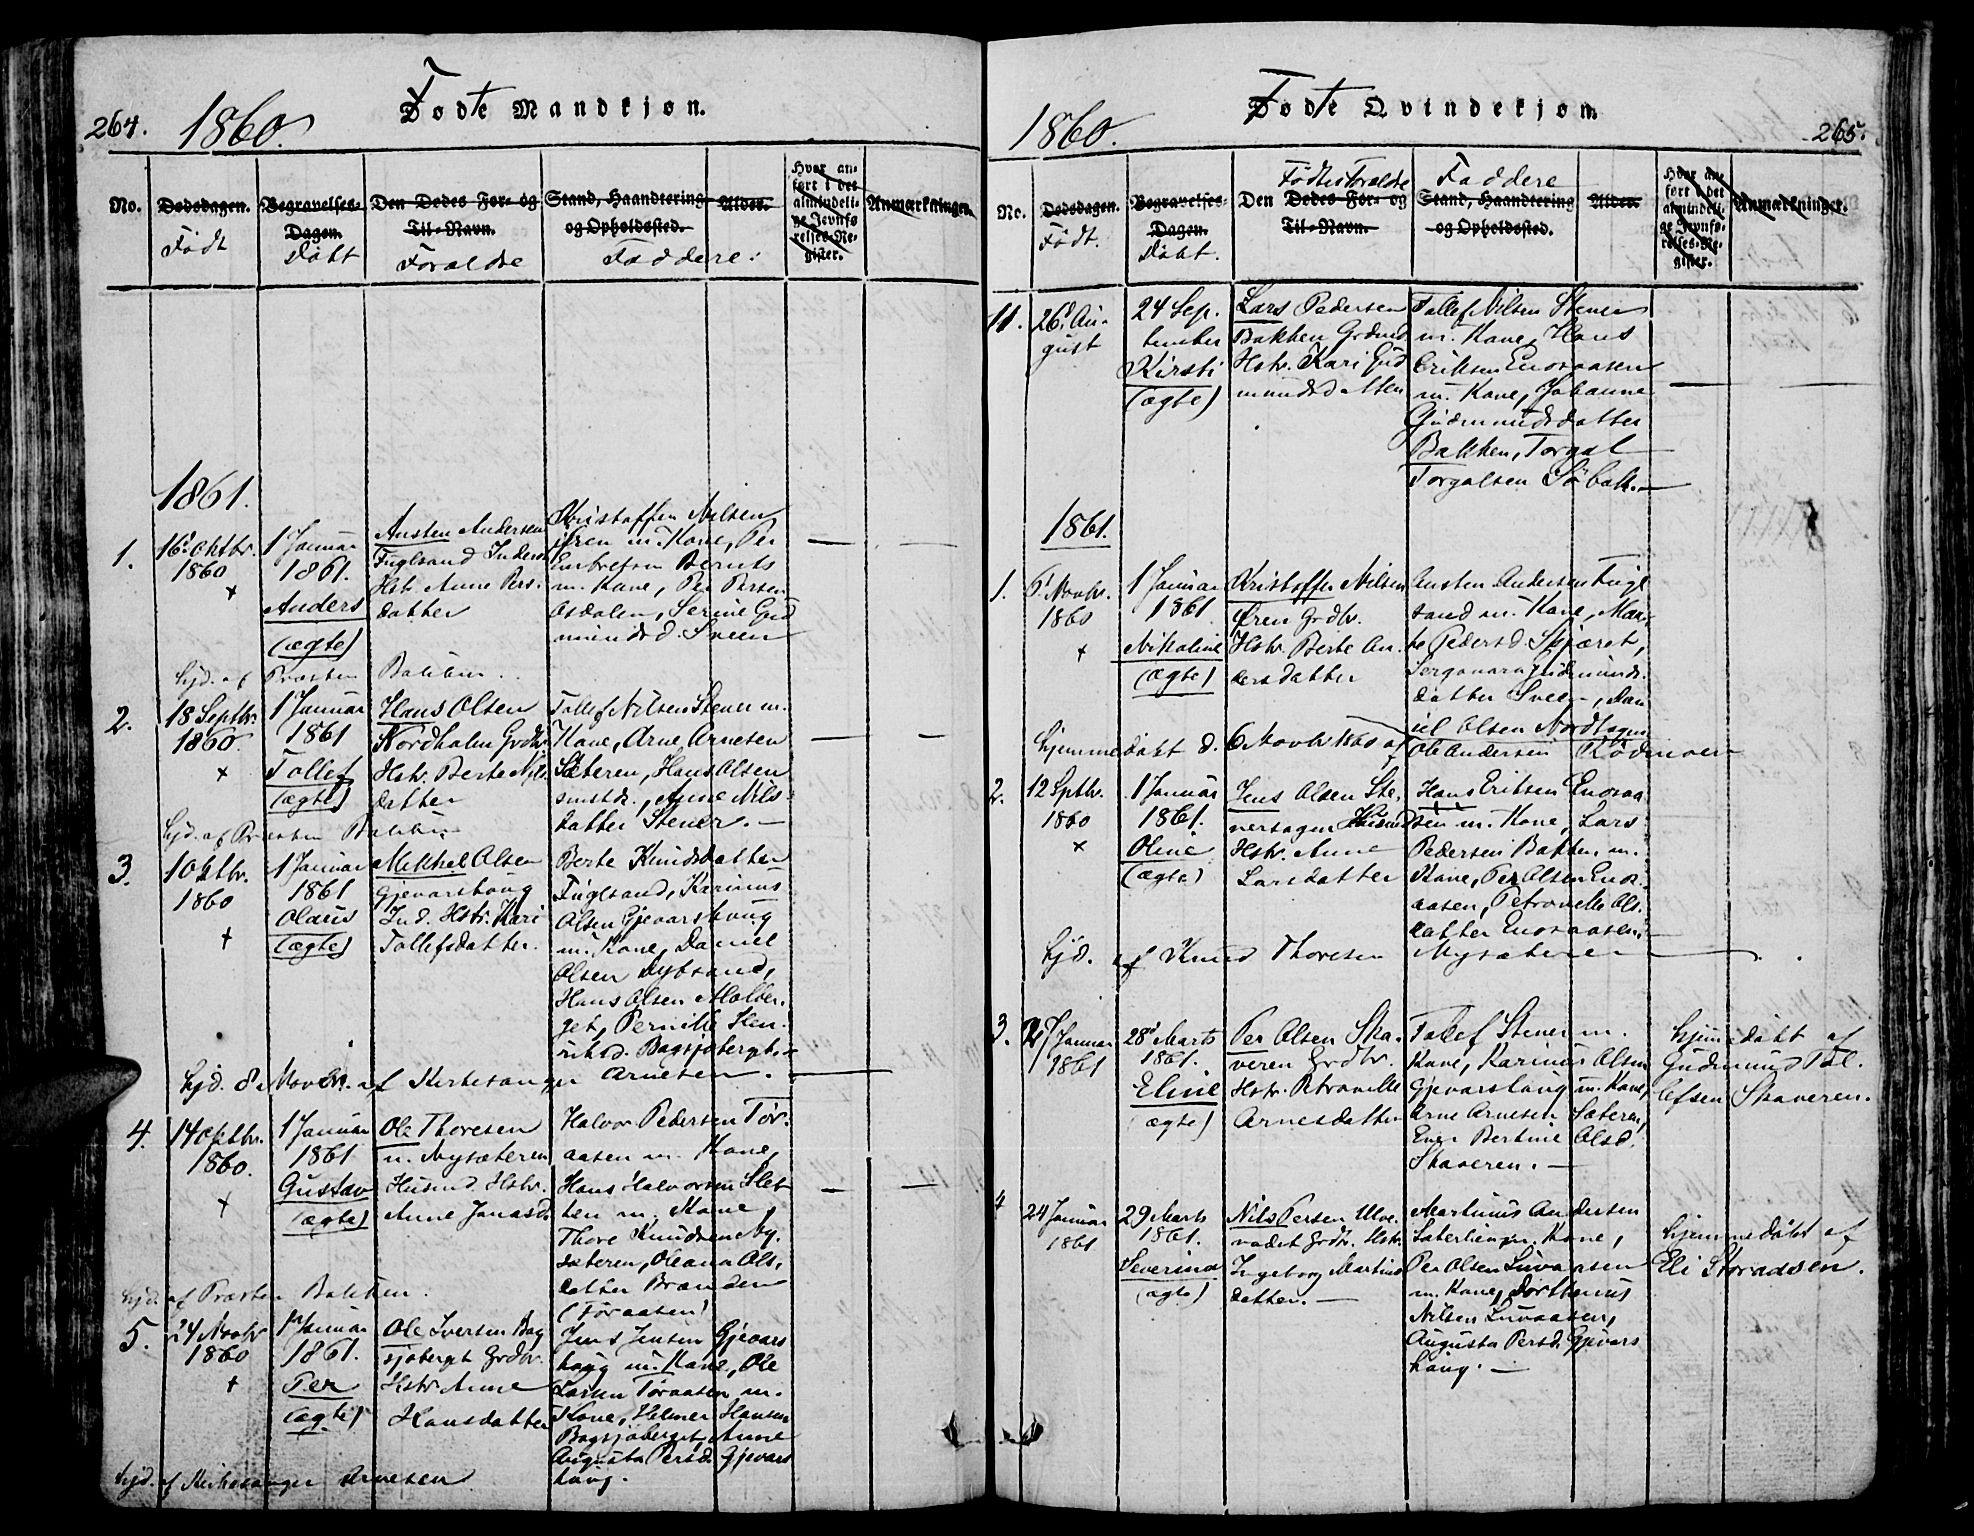 264.
1860.
Fødte Mandkjøn.
No.
Dødsdagen.
Født
Begravelses-
Dagen.
Døbt
Den Dødes For- og
Til-Navn.
Foraldre
Stand, Haandtering
og Opholdssted.
Faddere:
Alder.
Hvor an-
ført i det
almindeli-
ge Jevnfø-
relses-Re-
gister.
Anmærkninger.
1861.
1.
16' Oktbr.
1860
+
1 Januar
1861.
Anders
(ægte)
Austen Andersen
Fuglsand Inders
Hstr. Anne Pers-
datter
Kristoffer Nilsen
Øren m. Kone, Per
Embretsen Bernts
m. Kone, Per Persen
Osdalen, Serine Gud
mundsd. Sveen
hjd. af Præsten Bakken.
2.
18 Septbr.
1860.
+
1 Januar
1861
Tollef
(ægte)
Hans Olsen
Nordholen Grdbr.
Hstr. Berte Nils
datter
Tollef Nilsen Stener m.
Kone, Arne Arnesen
Sæteren, Hans Olsen
smstd., Anne Nils-
datter Stener. —
hjd. af Præsten Bakken
3.
1 Oktbr.
1860
+
1 Januar
1861
Olaus
(ægte)
Mikkel Olsen
Gjevarshoug
Ind. Hstr. Kari
Tollefsdatter.
Berte Knudsdatter
Fuglsand, Karinus
Olsen Gjevarshoug
m. Kone, Daniel
Olsen Lybsand,
Hans Olsen Molber-
get, Pernille Hen-
riksd. Bagsjøberget. —
hjd. 8 Novbr. af Kirkesanger Arnesen. —
4.
14 Oktbr.
1860.
+
1 Januar
1861
Gustav
(ægte)
Ole Thoresen
n. Nysæteren
Husmd. Hstr.
Anne Jonasd.
Halvor Pedersen Tør-
aasen m. Kone,
Hans Halvorsen Slet
ten m. Kone,
Thore Knudsen Ny-
sæteren, Oleana Ols-
datter Brænden
(Tøraasen)
hjd. af Præsten Bakken.
5.
24 Novbr
1860
+
1 Januar
1861.
Per
(ægte)
Ole Iversen Bag
sjøberget Grdbr.
Hstr. Anne
Hansdatter
Jens Jensen Gjevars
houg m. Kone, Ole
Larsen Tøraasen m.
Kone, Helmer Hansen
Bagsjøberget, Anne
Augusta Persd. Gjevars
houg.
hjd. af Kirkesanger Arnesen
1860.
Fødte Qvindekjøn.
265.
No.
Dødsdagen.
Født.
Begravelses-
Dagen.
Døbt.
Fødtes Foraldre
Den Dødes For- og
Til-Navn.
Faddere
Stand, Haandtering
og Opholdssted.
Alder.
Hvor an-
ført i det
almindeli-
ge Jevnfø-
relses-Re-
gister.
Anmærkninger.
11.
26' Au-
gust
24 Sep-
tember
Kirsti
(ægte)
Lars Pedersen
Bakken Grdmd
Hstr. Kari Gud
mundsdatten
Tollef Nilsen Stener
m. Kone, Hans
Eriksen Enosaasen
m. Kone, Johanne
Gudmundsdatter
Bakken, Torgal
Torgalsen Søbak. —
1861.
1.
6' Novbr.
1860
+
1 Januar
1861
Nikoline
(ægte)
Kristoffer Nilsen
Øren Grdbr.
Hstr. Berte An-
dersdatter
Austen Andersen Fugl
sand m. Kone, Mar-
te Pedersd. Skjæret,
Gudmunds-
datter Sveen, Dan
iel Olsen Nordhagen
hjemmedøbt d. 6 Novbr 1860 af Ole Andersen Rødmoen
2.
12 Sptbr.
1860
+
1 Januar
1861.
Oline
(ægte)
Jens Olsen Ste-
nerhagen Husmd
Hstr. Anne
Larsdatter
Hans Eriksen Enosaa
sen m. Kone, Lars
Pedersen Bakken m.
Kone, Per Olsen Enos-
aasen, Petronelle Ols-
datter Enosaasen. —
hjd. af Knud Thoresen Nysæteren
3.
27 Januar
1861
28' Marts
1861.
Eline
(ægte)
Per Olsen Ska-
veren Grdbr.
Hstr. Petronelle
Arnesdatter
Tollef Stener m.
Kone, Karinus Olsen
Gjevarshoug m. Kone,
Arne Arnesen Sæteren,
Bertine Olsd.
Skaveren. —
hjemmedøbt af
Gudmund Tol-
lefsen Skaveren.
4
24 Januar
1861
29 Marts
1861.
Severine
(ægte)
Nils Persen Ulve-
vadet Grdbr. Hstr.
Ingeborg Martins
datter. —
Martinus Andersen
Kone,
Per Olsen Luvaasen
m. Kone, Dorthenus
Nilsen Luvaasen,
Augusta Persd. Gjevars
houg. —
hjemmedøbt af
Eli Storaasen.